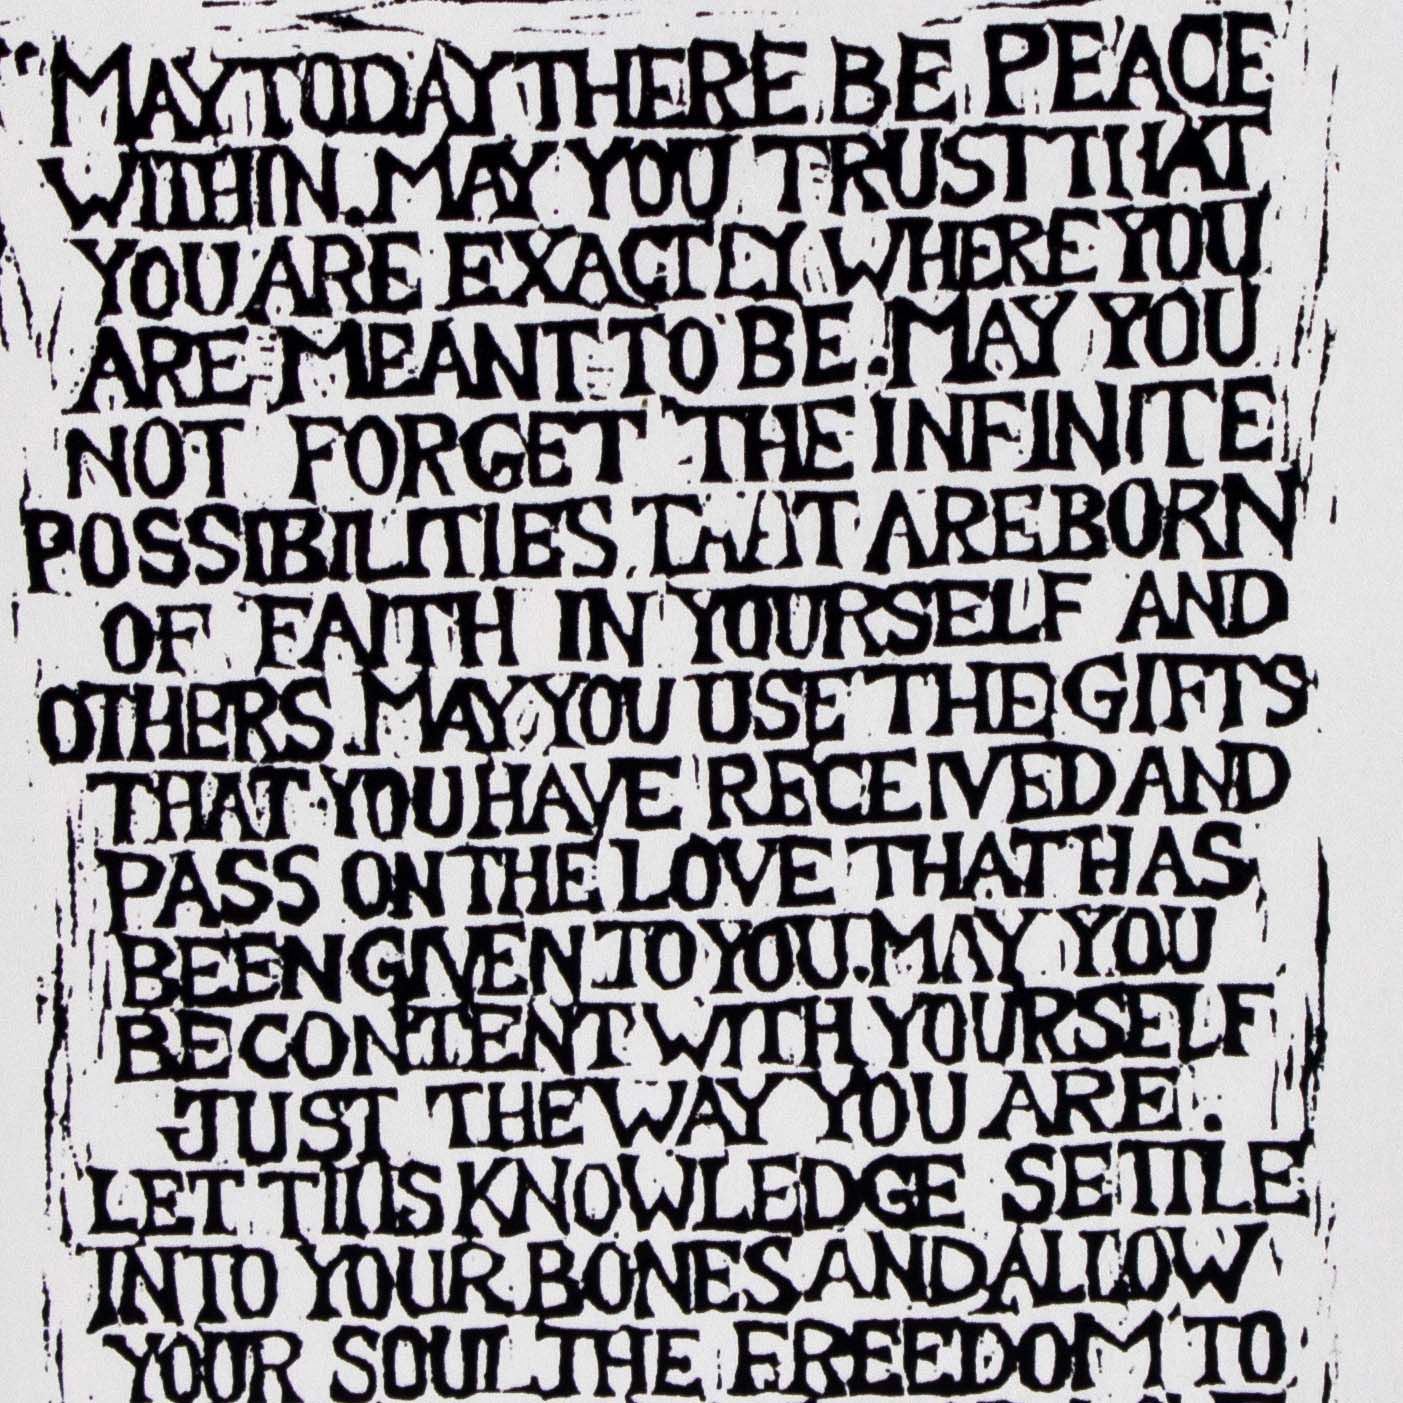 "MAY TODAY THERE BE PEACE
WITHIN. MAY YOU TRUST THAT
YOU ARE EXACTLY WHERE YOU
ARE MEANT TO BE. MAY YOU
NOT FORGET THE INFINITE
POSSIBILITIES THAT ARE BORN
OF FAITH IN YOURSELF AND
OTHERS. MAY YOU USE THE GIFTS
THAT YOU HAVE RECEIVED AND
PASS ON THE LOVE THAT HAS
BEEN GIVEN TO YOU. MAY YOU
BE CONTENT WITH YOURSELF
JUST THE WAY YOU ARE.
LET THIS KNOWLEDGE SETTLE
INTO YOUR BONES AND ALLOW
YOUR SOUL THE FREEDOM TO